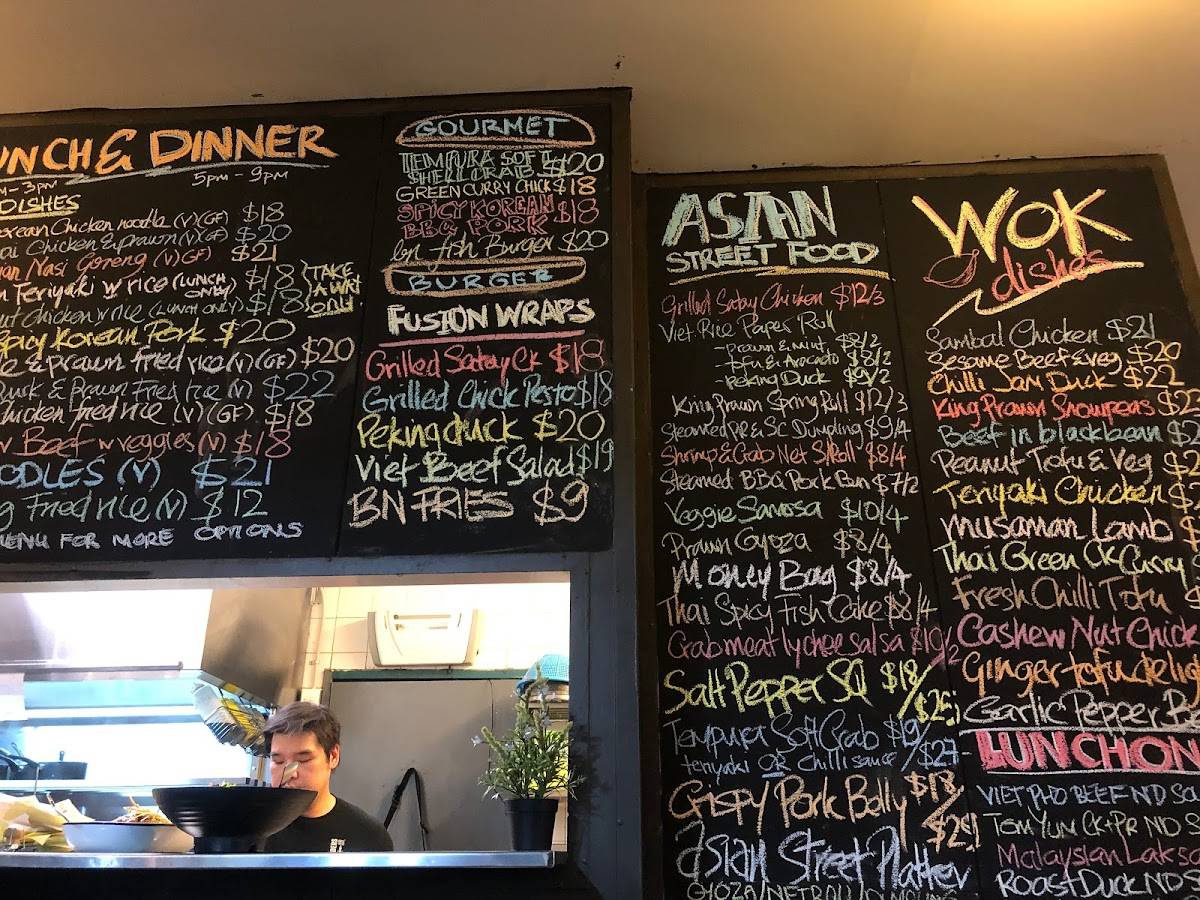 UNCH & DINNER
M - 3PM
5PM - 9PM
DISHES
orean Chicken noodle (V)(GF) $18
ai Chicken & prawn (V)(GF) $20
an Nasi Goreng (V)(GF) $21
n Teriyaki w rice (LUNCH ONLY) $18
ut Chicken w rice (LUNCH ONLY) $18
(TAKE AWAY ONLY)
Spicy Korean Pork $20
le & Prawn fried rice (V)(GF) $20
Duck & Prawn Fried rice (V) $22
chicken fried rice (V)(GF) $18
w Beef w veggies (V) $18
OODLES (V) $21
g Fried rice (V) $12
MENU FOR MORE OPTIONS
GOURMET
TEMPURA SOFT SHELL CRAB $20
GREEN CURRY CHICK $18
SPICY KOREAN BBQ PORK $18
bn fish Burger $20
BURGER
FUSION WRAPS
Grilled Satay CK $18
Grilled Chick Pesto $18
Peking duck $20
Viet Beef Salad $19
BN FRIES $9
ASIAN
STREET FOOD
Grilled Satay Chicken $12/3
Viet Rice Paper Roll
- Prawn & Mint $8/2
- Tofu & Avocado $8/2
- Peking Duck $9/2
King Prawn Spring Roll $12/3
Steamed PR & SC Dumpling $9/4
Shrimp & Crab Net S/Roll $8/4
Steamed BBQ Pork Bun $7/2
Veggie Samosa $10/4
Prawn Gyoza $8/4
Money Bag $8/4
Thai Spicy Fish Cake $8/4
Crabmeat lychee salsa $10/2
Salt Pepper SQ $18/$25
Tempura Soft Crab $19/$27
teriyaki OR chilli sauce
Crispy Pork Belly $18/$25
Asian Street Platter
GYOZA/NETROLL/DUMPLING
WOK
dishes
Sambal Chicken $21
Sesame Beef & veg $20
Chilli Jam Duck $22
King Prawn Snowpeas $2
Beef in blackbean $2
Peanut Tofu & Veg $2
Teriyaki Chicken $
Musaman Lamb $
Thai Green CK Curry $
Fresh Chilli Tofu $
Cashew Nut Chick
Ginger tofu delig
Garlic Pepper B
LUNCH ON
VIET PHO BEEF ND SO
TOM YUM CK+PR ND S
Malaysian Laksa
ROAST DUCK ND S